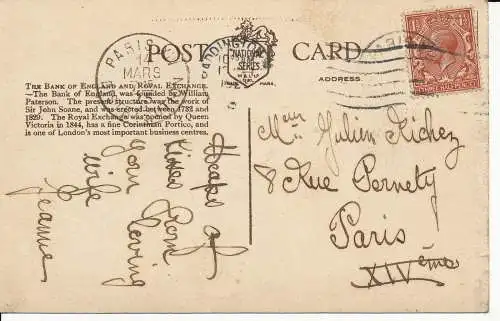 POST CARD
NATIONAL
SERIES
ADDRESS
PARIS
MARS
PADDINGTON
THE BANK OF ENGLAND AND ROYAL EXCHANGE.
—The Bank of England, was founded by William
Paterson. The present structure was the work of
Sir John Soane, and was erected between 1788 and
1829. The Royal Exchange was opened by Queen
Victoria in 1844, has a fine Corinthian Portico, and
is one of London's most important business centres.
Heaps of
Kisses from
your loving
wife
Jeanne
Julien Richez
8 Rue Pernety
Paris
XIVème